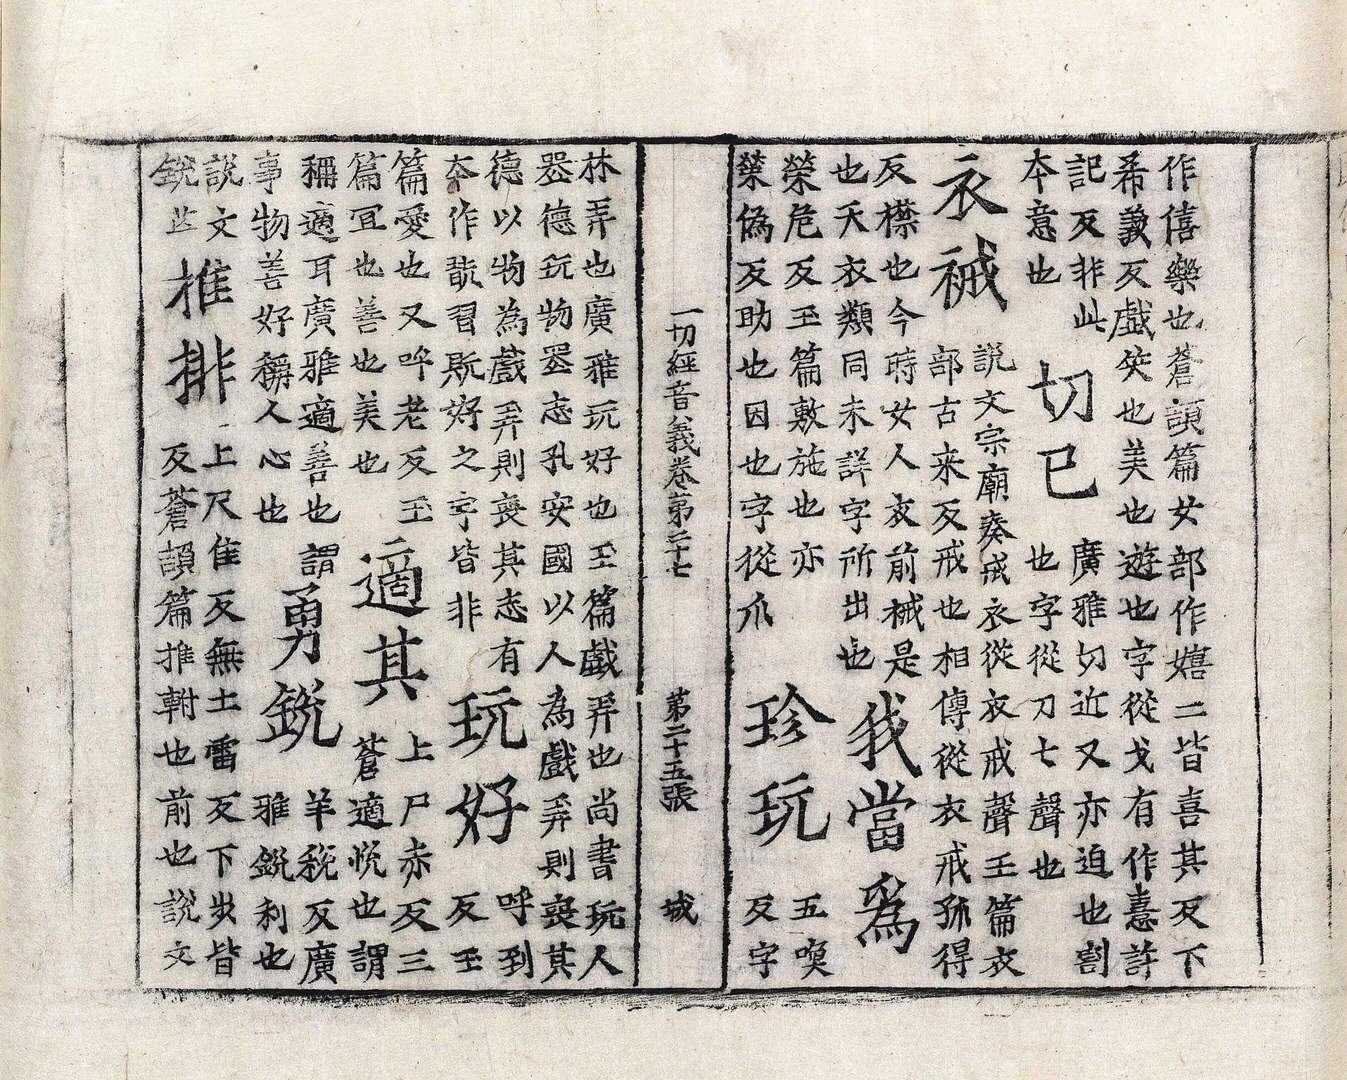 作僖樂也蒼頡篇女部作嬉二皆喜其反下
希義反戲笑也美也遊也字從戈有作憙許
記反非此
本意也
切已
廣雅切近又亦迫也割
也字從刀七聲也
衣祴
說文宗廟奏祴衣從衣戒聲玉篇衣
部古来反戒也相傳從衣戒孫得
反襟也今時女人衣前祴是
也天衣類同未詳字所出也
我當爲
榮危反玉篇敷施也亦
蘂偽反助也因也字從爪
珍玩
五喚
反字
一切經音義卷第二十七 第二十五張 城
林弄也廣雅玩好也玉篇戲弄也尚書玩人
器德玩物器志孔安國以人為戲弄則喪其
德以物為戲弄則喪其志有
本作翫習厭好之字皆非
玩好
呼到
反玉
篇愛也又呼老反玉
篇冝也善也美也
適其
上尸赤反三
蒼適悅也謂
稱適耳廣雅適善也謂
事物善好稱人心也
勇銳
羊稅反廣
雅銳利也
說文
銳芒
推排
上尺隹反無土雷反下步皆
反蒼頡篇推軵也前也說文